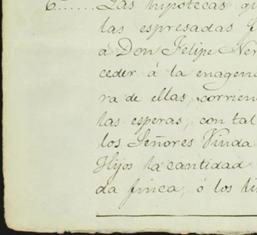 6.° ...... Las hipotecas qu
las espresadas f
á Don Felipe Ner
ceder á la enagen
ra de ellas, corrien
las esperas, con tal
los Señores Viuda
Hijos la cantidad
da finca, ó los hi